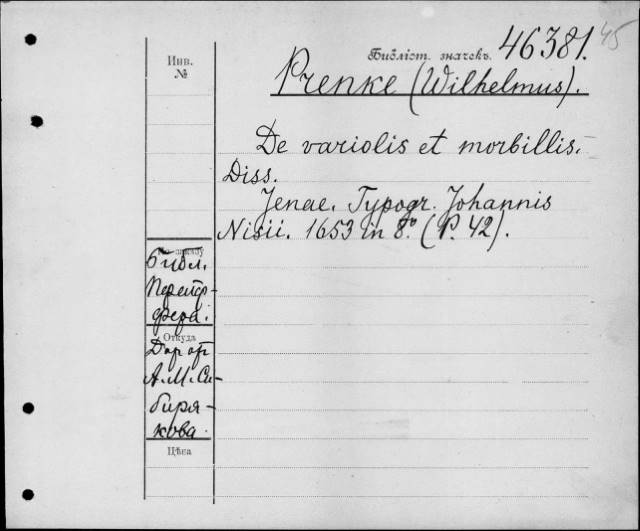 45
Библіот. значекъ. 46381.
Инв.
№
Prenke (Wilhelmus).
De variolis et morbillis.
Diss.
Jenae. Typogr. Johannis
Nisii. 1653 in 8º. (P. 42).
Библ.
Пфера.
Откуда
Дар от
А. М. Си-
биря-
кова.
Цѣна